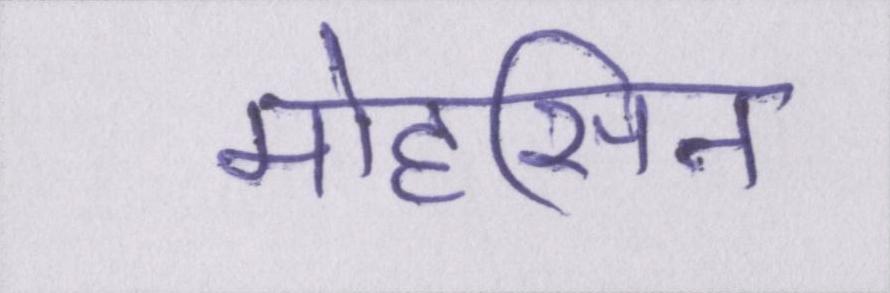 मोहसिन